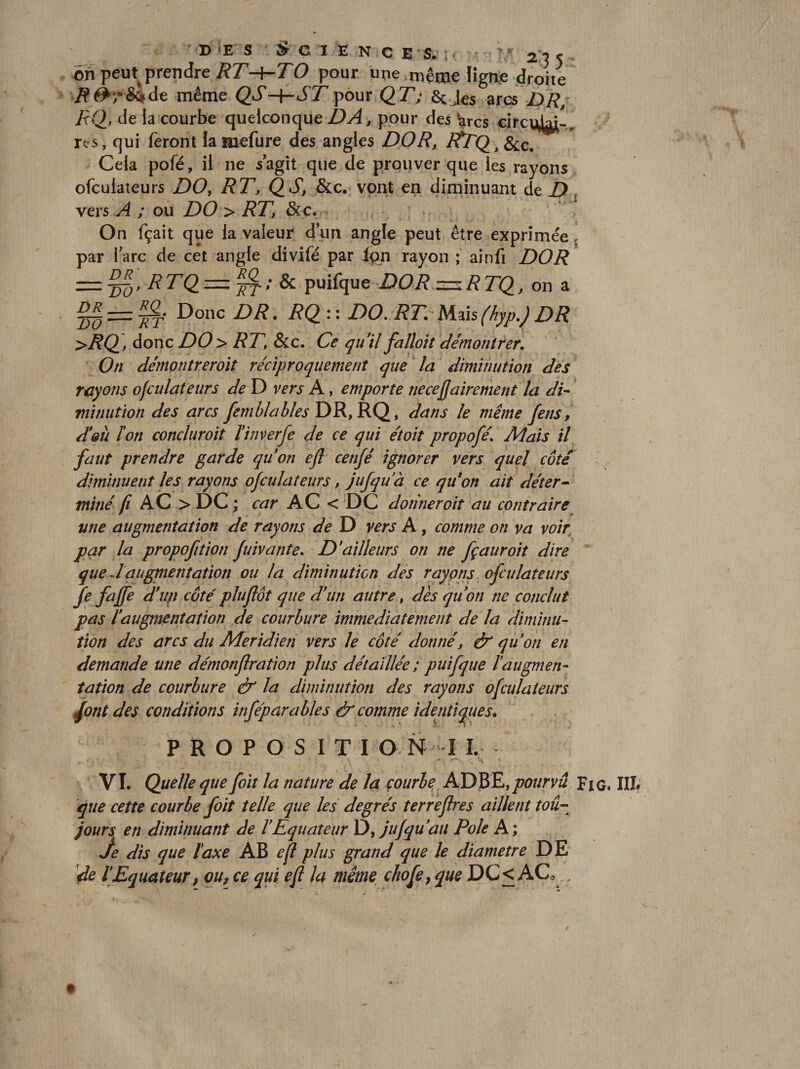 DES SCIENCES. 235
on peut prendre RT+TO pour une même ligne droite
RO; & de même QS+ST pour QT; & les arcs DR,
RQ, de la courbe quelconque DA, pour des arcs circulai-
res, qui feront la mesure des angles DOR, RTQ, &c.
Cela posé, il ne s'agit que de prouver que les rayons
osculateurs DO, RT, QS, &c. vont en diminuant de D
vers A; ou DO > RT, &c.
On sçait que la valeur d'un angle peut être exprimée
par l'arc de cet angle divisé par son rayon; ainsi DOR
= DR/DO, RTQ = RQ/RT; & puisque DOR = RTQ, on a
DR/DO = RQ/RT. Donc DR. RQ :: DO. RT. Mais (hyp.) DR
>RQ, donc DO > RT, &c. Ce qu'il falloit démontrer.
On démontreroit réciproquement que la diminution des
rayons osculateurs de D vers A, emporte necessairement la di-
minution des arcs semblables DR, RQ, dans le même sens,
d'où l'on concluroit l'inverse de ce qui étoit proposé. Mais il
faut prendre garde qu'on est censé ignorer vers quel côté
diminuent les rayons osculateurs, jusqu'à ce qu'on ait déter-
miné si AC > DC; car AC < DC donneroit au contraire
une augmentation de rayons de D vers A, comme on va voir
par la proposition suivante. D'ailleurs on ne sçauroit dire
que l'augmentation ou la diminution des rayons osculateurs
se fasse d'un côté plustôt que d'un autre, dès qu'on ne conclut
pas l'augmentation de courbure immediatement de la diminu-
tion des arcs du Meridien vers le côté donné, & qu'on en
demande une démonstration plus détaillée; puisque l'augmen-
tation de courbure & la diminution des rayons osculateurs
sont des conditions inséparables & comme identiques.
PROPOSITION II.
VI. Quelle que soit la nature de la courbe ADBE, pourvû FIG. III.
que cette courbe soit telle que les degrés terrestres aillent toû-
jours en diminuant de l'Equateur D, jusqu'au Pole A;
Je dis que l'axe AB est plus grand que le diametre DE
de l'Equateur, ou, ce qui est la même chose, que DC < AC.